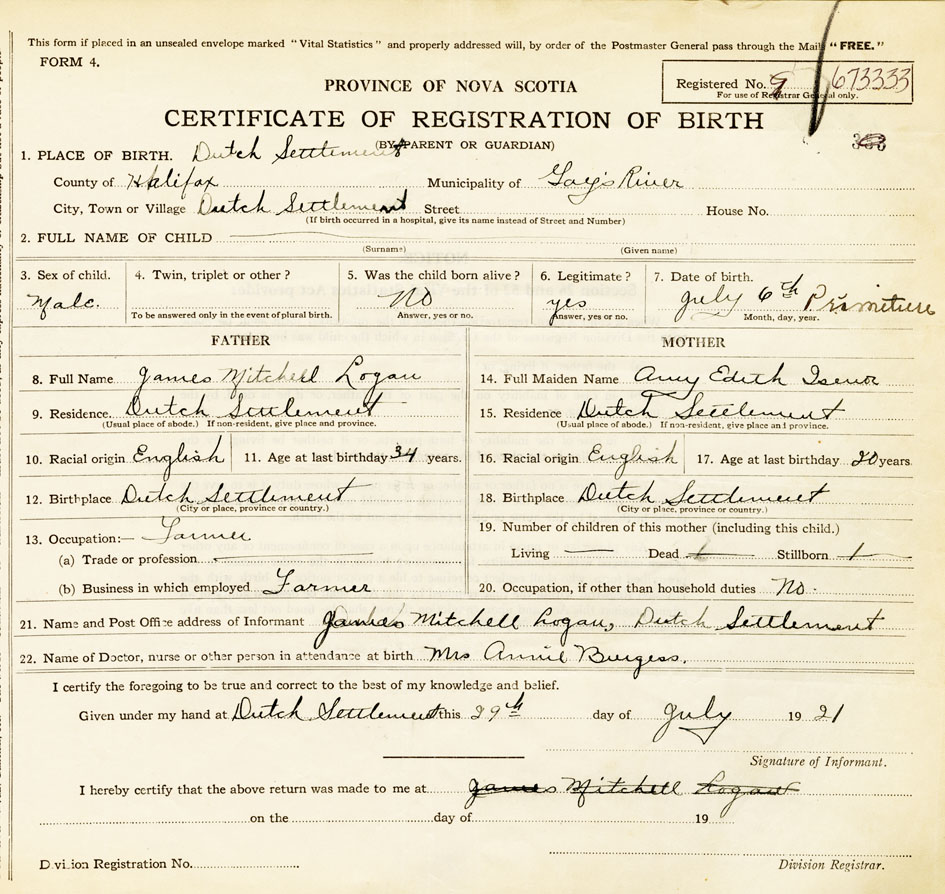 This form if placed in an unsealed envelope marked "Vital Statistics" and properly addressed will, by order of the Postmaster General pass through the Mail "FREE."
FORM 4.
PROVINCE OF NOVA SCOTIA
Registered No. 673333
For use of Registrar General only.
CERTIFICATE OF REGISTRATION OF BIRTH
(BY PARENT OR GUARDIAN)
1. PLACE OF BIRTH. Dutch Settlement
County of Halifax Municipality of Gay's River
City, Town or Village Dutch Settlement Street House No.
(If birth occurred in a hospital, give its name instead of Street and Number)
2. FULL NAME OF CHILD
(Surname) (Given name)
3. Sex of child. 4. Twin, triplet or other? 5. Was the child born alive? 6. Legitimate? 7. Date of birth.
Male. No yes July 6th Primeture
To be answered only in the event of plural birth. Answer, yes or no. Answer, yes or no. Month, day, year.
FATHER MOTHER
8. Full Name James Mitchell Logan 14. Full Maiden Name Amy Edith Isenor
9. Residence. Dutch Settlement 15. Residence Dutch Settlement
(Usual place of abode.) If non-resident, give place and province. (Usual place of abode.) If non-resident, give place and province.
10. Racial origin English 11. Age at last birthday 34 years. 16. Racial origin English 17. Age at last birthday 20 years.
12. Birthplace Dutch Settlement 18. Birthplace Dutch Settlement
(City or place, province or country.) (City or place, province or country.)
13. Occupation:— Farmer 19. Number of children of this mother (including this child.)
(a) Trade or profession Living — Dead 1 Stillborn 1
(b) Business in which employed Farmer 20. Occupation, if other than household duties No.
21. Name and Post Office address of Informant James Mitchell Logan, Dutch Settlement
22. Name of Doctor, nurse or other person in attendance at birth Mrs Annie Burgess.
I certify the foregoing to be true and correct to the best of my knowledge and belief.
Given under my hand at Dutch Settlement this 29th day of July 1921
Signature of Informant.
I hereby certify that the above return was made to me at James Mitchell Logan
on the day of 19
Division Registration No.
Division Registrar.